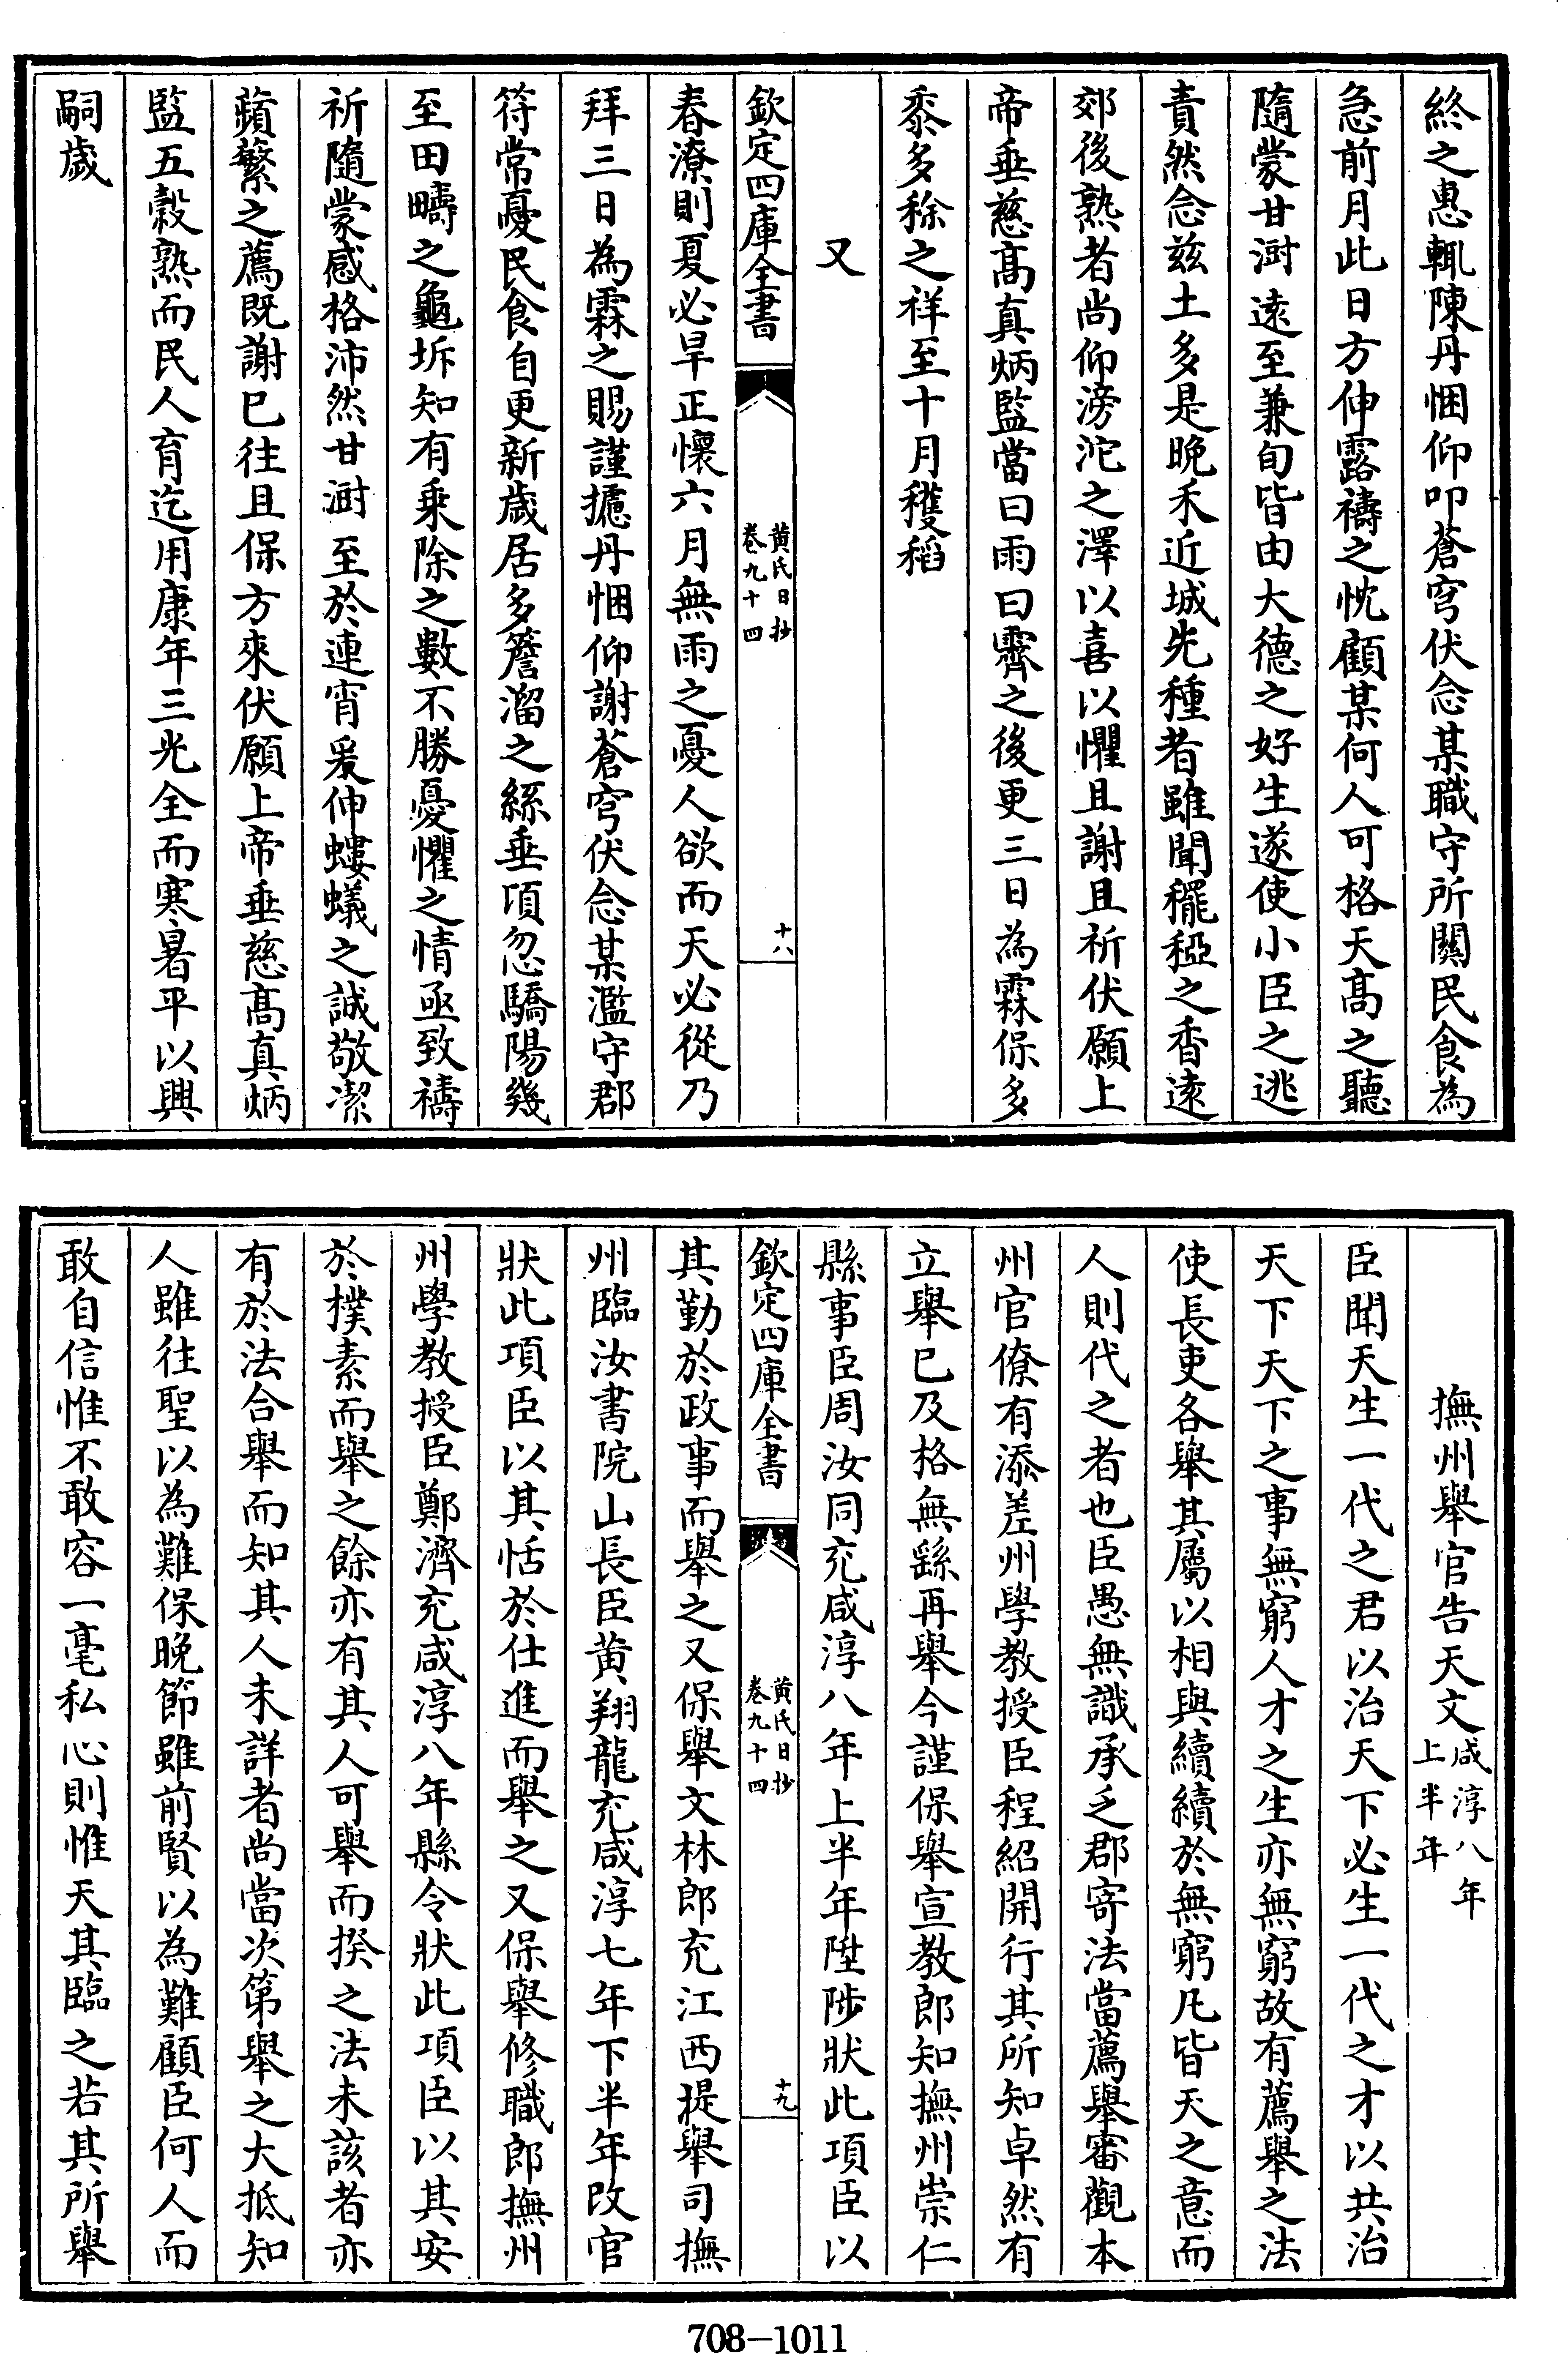 終之惠輒陳丹悃仰叩蒼穹伏念某職守所關民食為
急前月此日方伸露禱之忱顧某何人可格天髙之聽
隨蒙甘澍逺至兼旬皆由大德之好生遂使小臣之逃
責然念兹土多是晚禾近城先種者雖聞䆉稏之香逺
郊後熟者尚仰滂沱之澤以喜以懼且謝且祈伏願上
帝垂慈髙真炳監當曰雨曰霽之後更三日為霖保多
黍多稌之祥至十月穫稻
又
欽定四庫全書
黄氏日抄
卷九十四
十八
春潦則夏必旱正懷六月無雨之憂人欲而天必從乃
拜三日為霖之賜謹攄丹悃仰謝蒼穹伏念某濫守郡
符常憂民食自更新歲居多簷溜之絲垂項忽驕陽幾
至田疇之龜坼知有乗除之數不勝憂懼之情亟致禱
祈隨蒙感格沛然甘澍至於連宵爰伸螻蟻之誠敬潔
蘋蘩之薦既謝已往且保方來伏願上帝垂慈髙真炳
監五穀熟而民人育迄用康年三光全而寒暑平以興
嗣歲
撫州舉官告天文咸淳八年
上半年
臣聞天生一代之君以治天下必生一代之才以共治
天下天下之事無窮人才之生亦無窮故有薦舉之法
使長吏各舉其屬以相與續續於無窮凡皆天之意而
人則代之者也臣愚無識承乏郡寄法當薦舉審觀本
州官僚有添差州學教授臣程紹開行其所知卓然有
立舉已及格無繇再舉今謹保舉宣教郎知撫州崇仁
縣事臣周汝同充咸淳八年上半年陞陟狀此項臣以
欽定四庫全書
黄氏日抄
卷九十四
十九
其勤於政事而舉之又保舉文林郎充江西提舉司撫
州臨汝書院山長臣黄翔龍充咸淳七年下半年改官
狀此項臣以其恬於仕進而舉之又保舉修職郎撫州
州學教授臣鄭濟充咸淳八年縣令狀此項臣以其安
於撲素而舉之餘亦有其人可舉而揆之法未該者亦
有於法合舉而知其人未詳者尚當次第舉之大抵知
人雖往聖以為難保晚節雖前賢以為難顧臣何人而
敢自信惟不敢容一毫私心則惟天其臨之若其所舉
708-1011